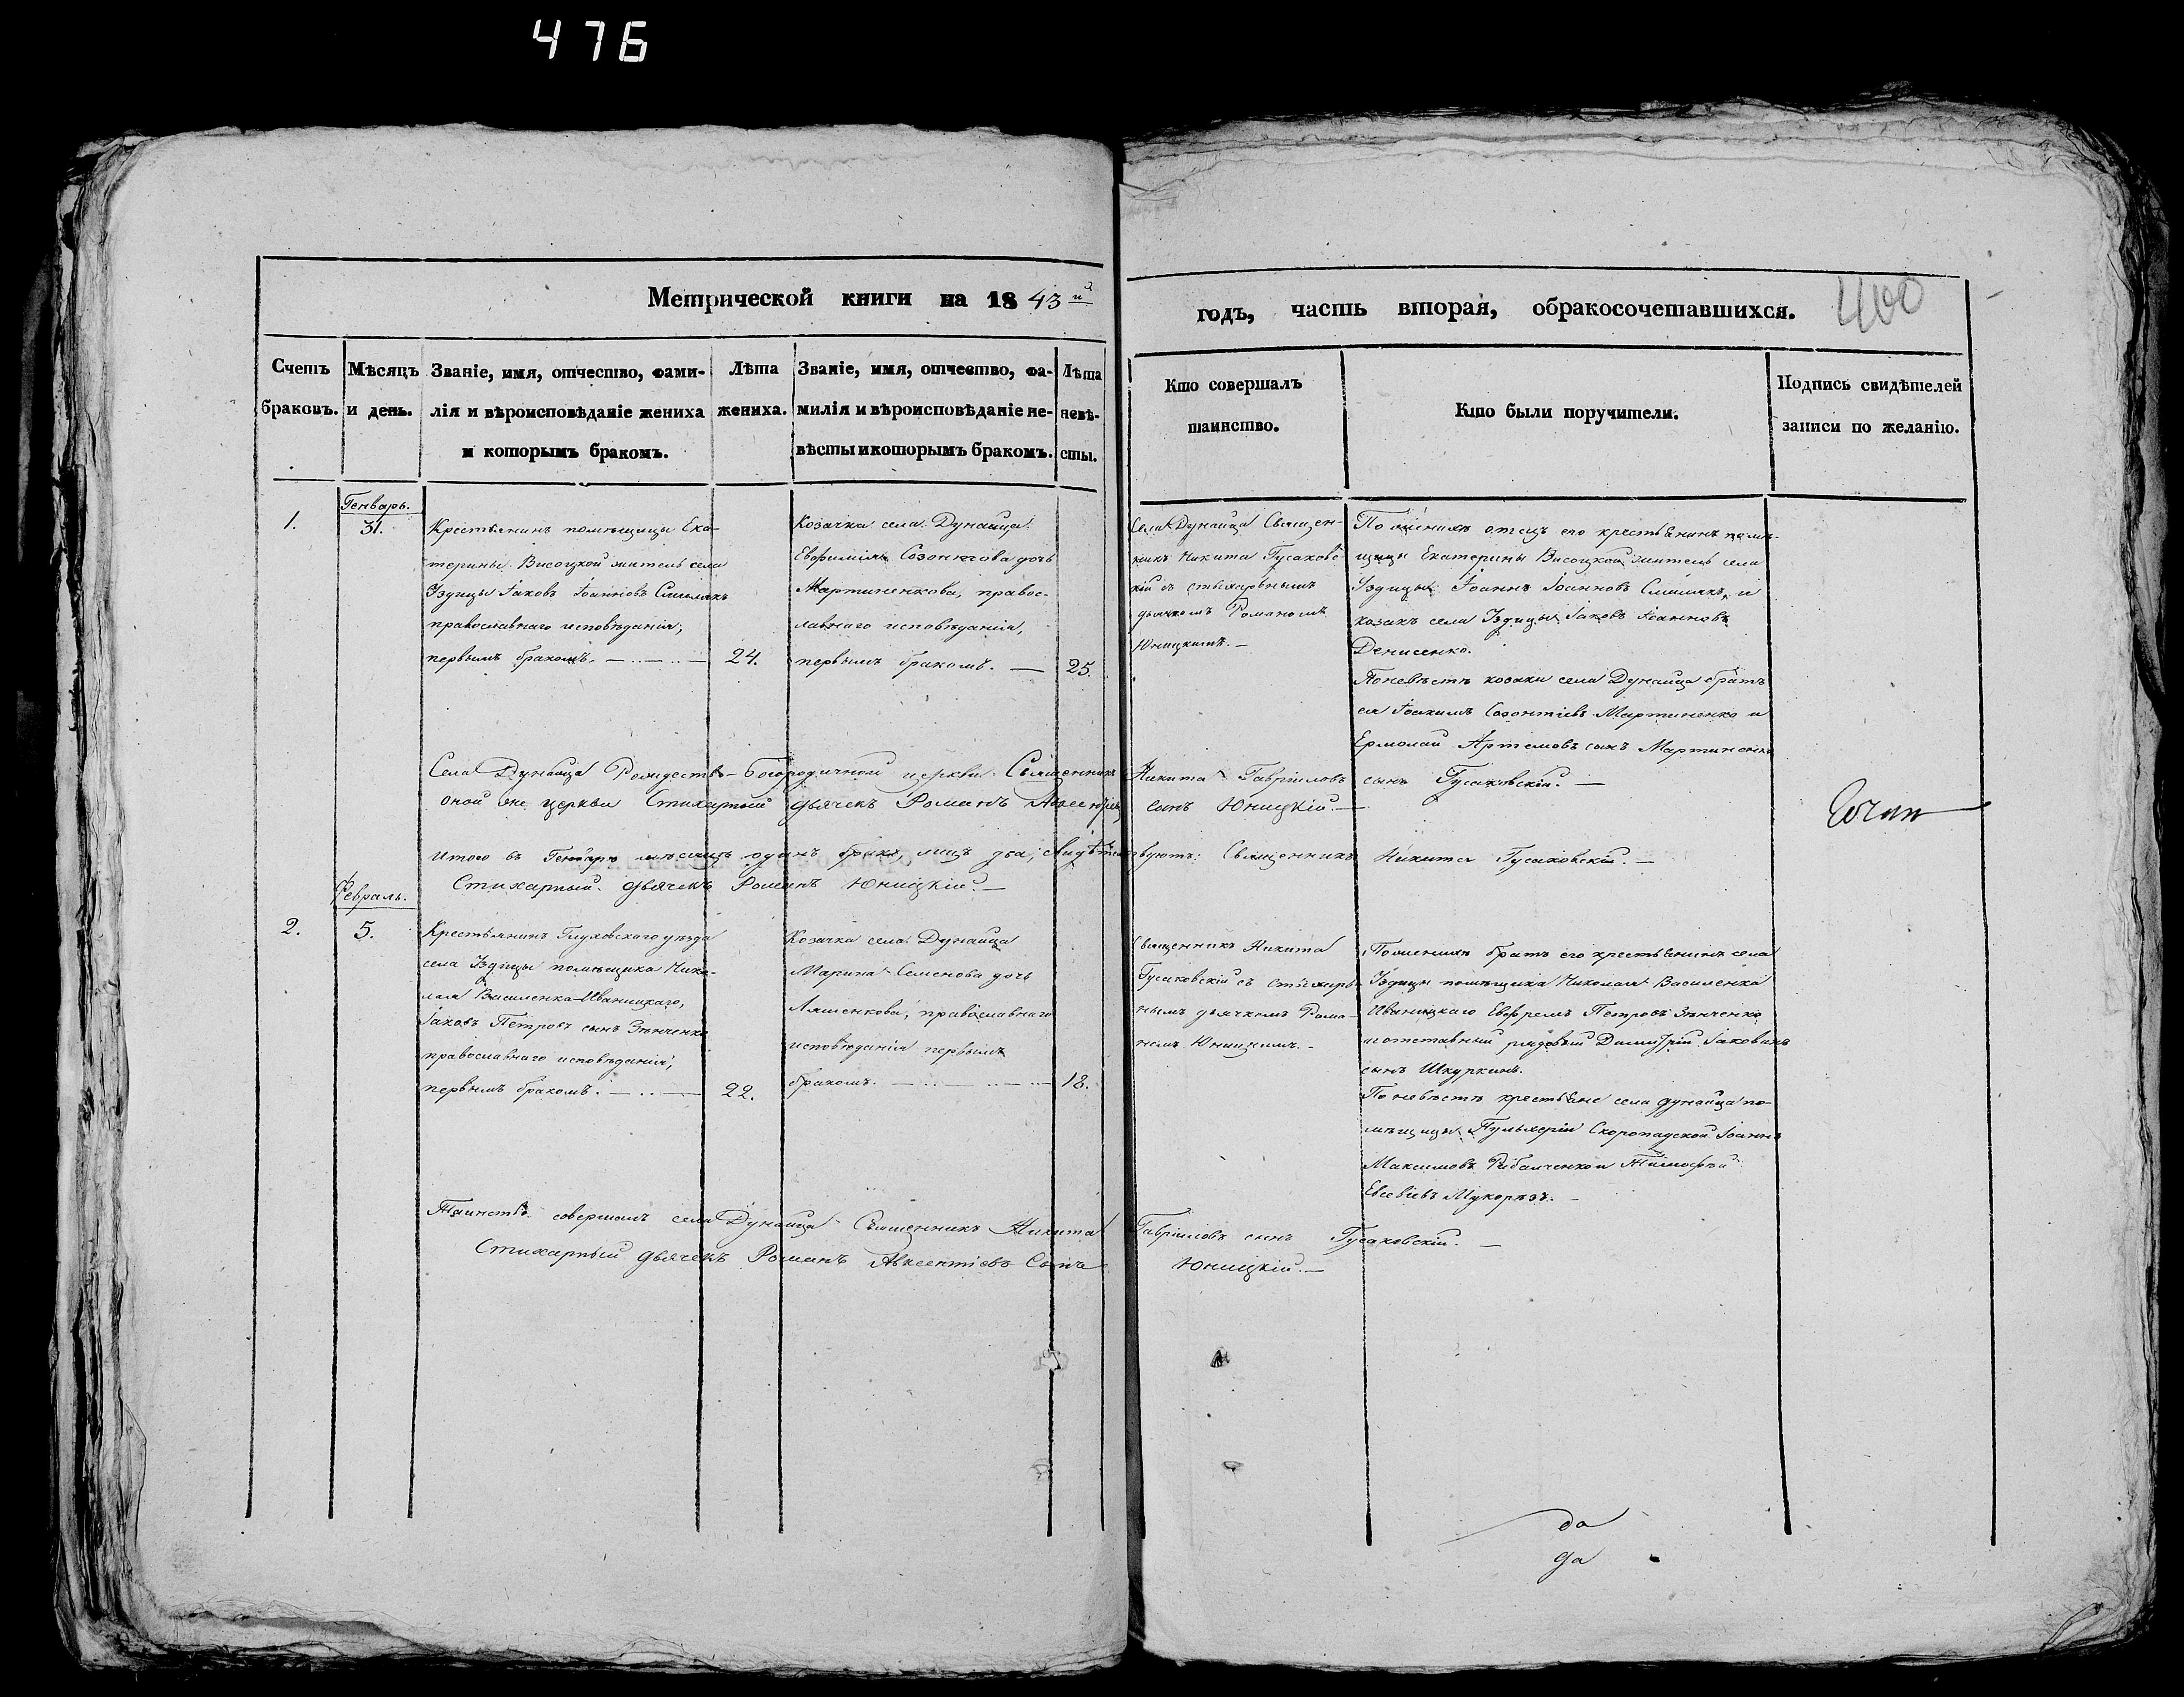 476
Метрической книги на 1843й
годъ, часть вторая, обракосочетавшихся.
400
Счетъ
браковъ.
Мѣсяцъ
и день.
Званіе, имя, отчество, фами-
лія и вѣроисповѣданіе жениха
и которымъ бракомъ.
Лѣта
жениха.
Званіе, имя, отчество, фа-
милія и вѣроисповѣданіе не-
вѣсты и которымъ бракомъ.
Лѣта
невѣ-
сты.
Кто совершалъ
таинство.
Кто были поручители.
Подпись свидѣтелей
записи по желанію.
Генварь.
1.
31.
Крестьянинъ помѣщицы Ека-
терины Висоцкой житель села
Уздицы Іаковъ Іоанновъ
православнаго исповѣданія,
первымъ бракомъ.
24.
Козачка села Дунайца
Евфимія Созонтова дочь
Мартиненкова, правос-
лавнаго исповѣданія,
первымъ бракомъ.
25.
Села Дунайца Священ-
никъ Никита Гусаковс-
кій съ стыхарнымъ
дьячкомъ Романомъ
Юницкимъ.
По женихѣ отецъ его крестьянинъ помѣ-
щицы Екатерины Висоцкой житель села
Уздицы Іоаннъ Іоанновъ и
козакъ села Уздицы Іаковъ Іоанновъ
Денисенко.
По невѣстѣ козаки села Дунайца братъ
ея Іоакимъ Созонтіевъ Мартиненко и
Ермолай Артемовъ сынъ Мартиненко
Села Дунайца Рождество-Богородичной церкви Священникъ Никита Гавріиловъ сынъ Гусаковскій.
оной же церкви Стихарный дьячекъ Романъ Авксентіевъ сынъ Юницкій.
Итого въ Генварѣ мѣсяцѣ одинъ бракъ лицъ два; свидѣтельствуютъ: Священникъ Никита Гусаковскій.
Стихарный дьячекъ Романъ Юницкій.
Февраль.
2.
5.
Крестьянинъ Глуховскаго уѣзда
села Уздицы помѣщика Нико-
лая Василенка-Иваницкаго,
Іаковъ Петровъ сынъ Зѣнченко
православнаго исповѣданія,
первымъ бракомъ.
22.
Козачка села Дунайца
Марина Семенова дочь
Ляшенкова, православнаго
исповѣданія первымъ
бракомъ.
18.
Священникъ Никита
Гусаковскій съ стыхар-
нымъ дьячкомъ Рома-
номъ Юницкимъ.
По женихѣ братъ его крестьянинъ села
Уздицы помѣщика Николая Василенка
Иваницкаго Евфремъ Петровъ Зѣнченко
и отставный рядовый Димитрій Іаковлевъ
сынъ Шкуркинъ.
По невѣстѣ крестьяне села Дунайца по-
мѣщицы Пульхеріи Скоропадской Іоаннъ
Максимовъ Рибалченко и Тимофѣй
Евсевіевъ Мукорѣзъ.
Таинство совершалъ села Дунайца Священникъ Никита Гавріиловъ сынъ Гусаковскій.
Стихарный дьячекъ Романъ Авксентіевъ Сынъ Юницкій.